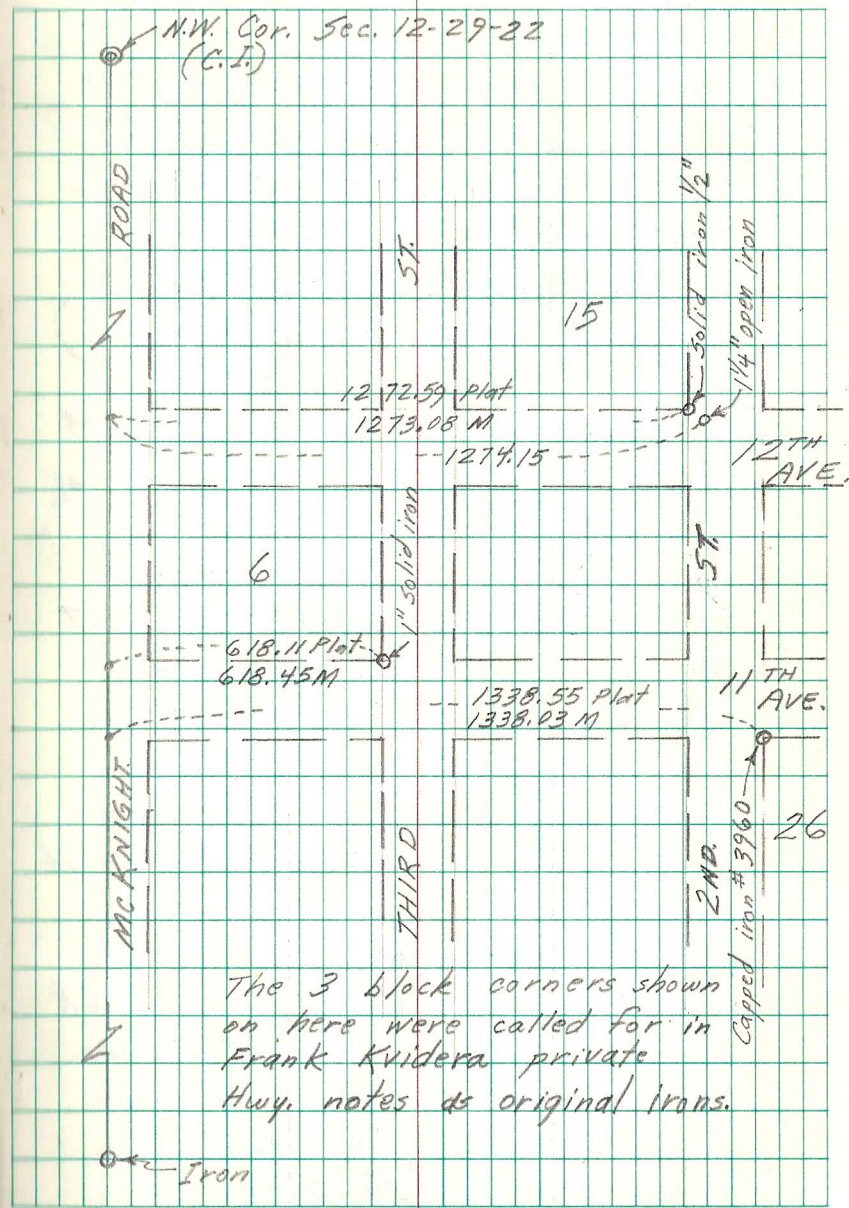 N.W. Cor. Sec. 12-29-22
(C.I.)
ROAD
ST.
15
Solid iron 1/2"
1 1/4" open iron
1272.59 Plat
1273.08 M
1274.15
12TH
AVE.
6
1" solid iron
ST.
618.11 Plat
618.45 M
1338.55 Plat
1338.03 M
11TH
AVE.
MCKNIGHT
THIRD
2ND.
Capped iron #3960
26
The 3 block corners shown
on here were called for in
Frank Kvidera private
Hwy. notes as original irons.
Iron